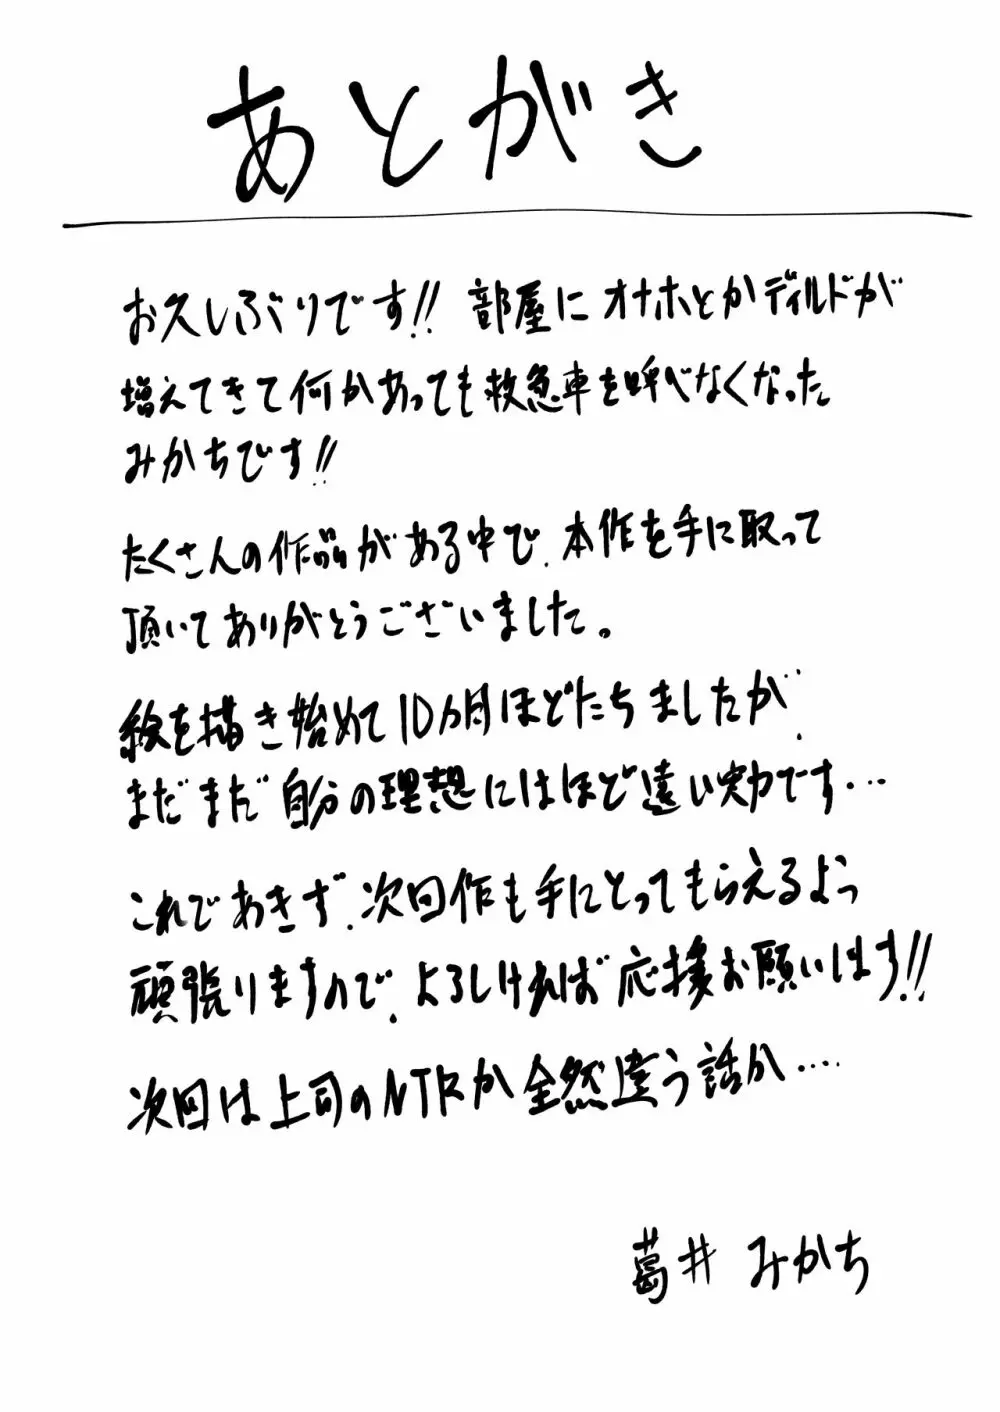 あとがき
お久しぶりです!! 部屋にオナホとかディルドが
増えてきて何かあっても救急車を呼べなくなった
みかちです!!
たくさんの作品がある中で、本作を手に取って
頂いてありがとうございました。
絵を描き始めて10ヵ月ほどたちましたが、
まだまだ自分の理想にはほど遠い実力です…
これであきず、次回作も手にとってもらえるよう
頑張りますので、よろしければ応援お願いします!!
次回は上司のNTRか全然違う話か….
葛井 みかち